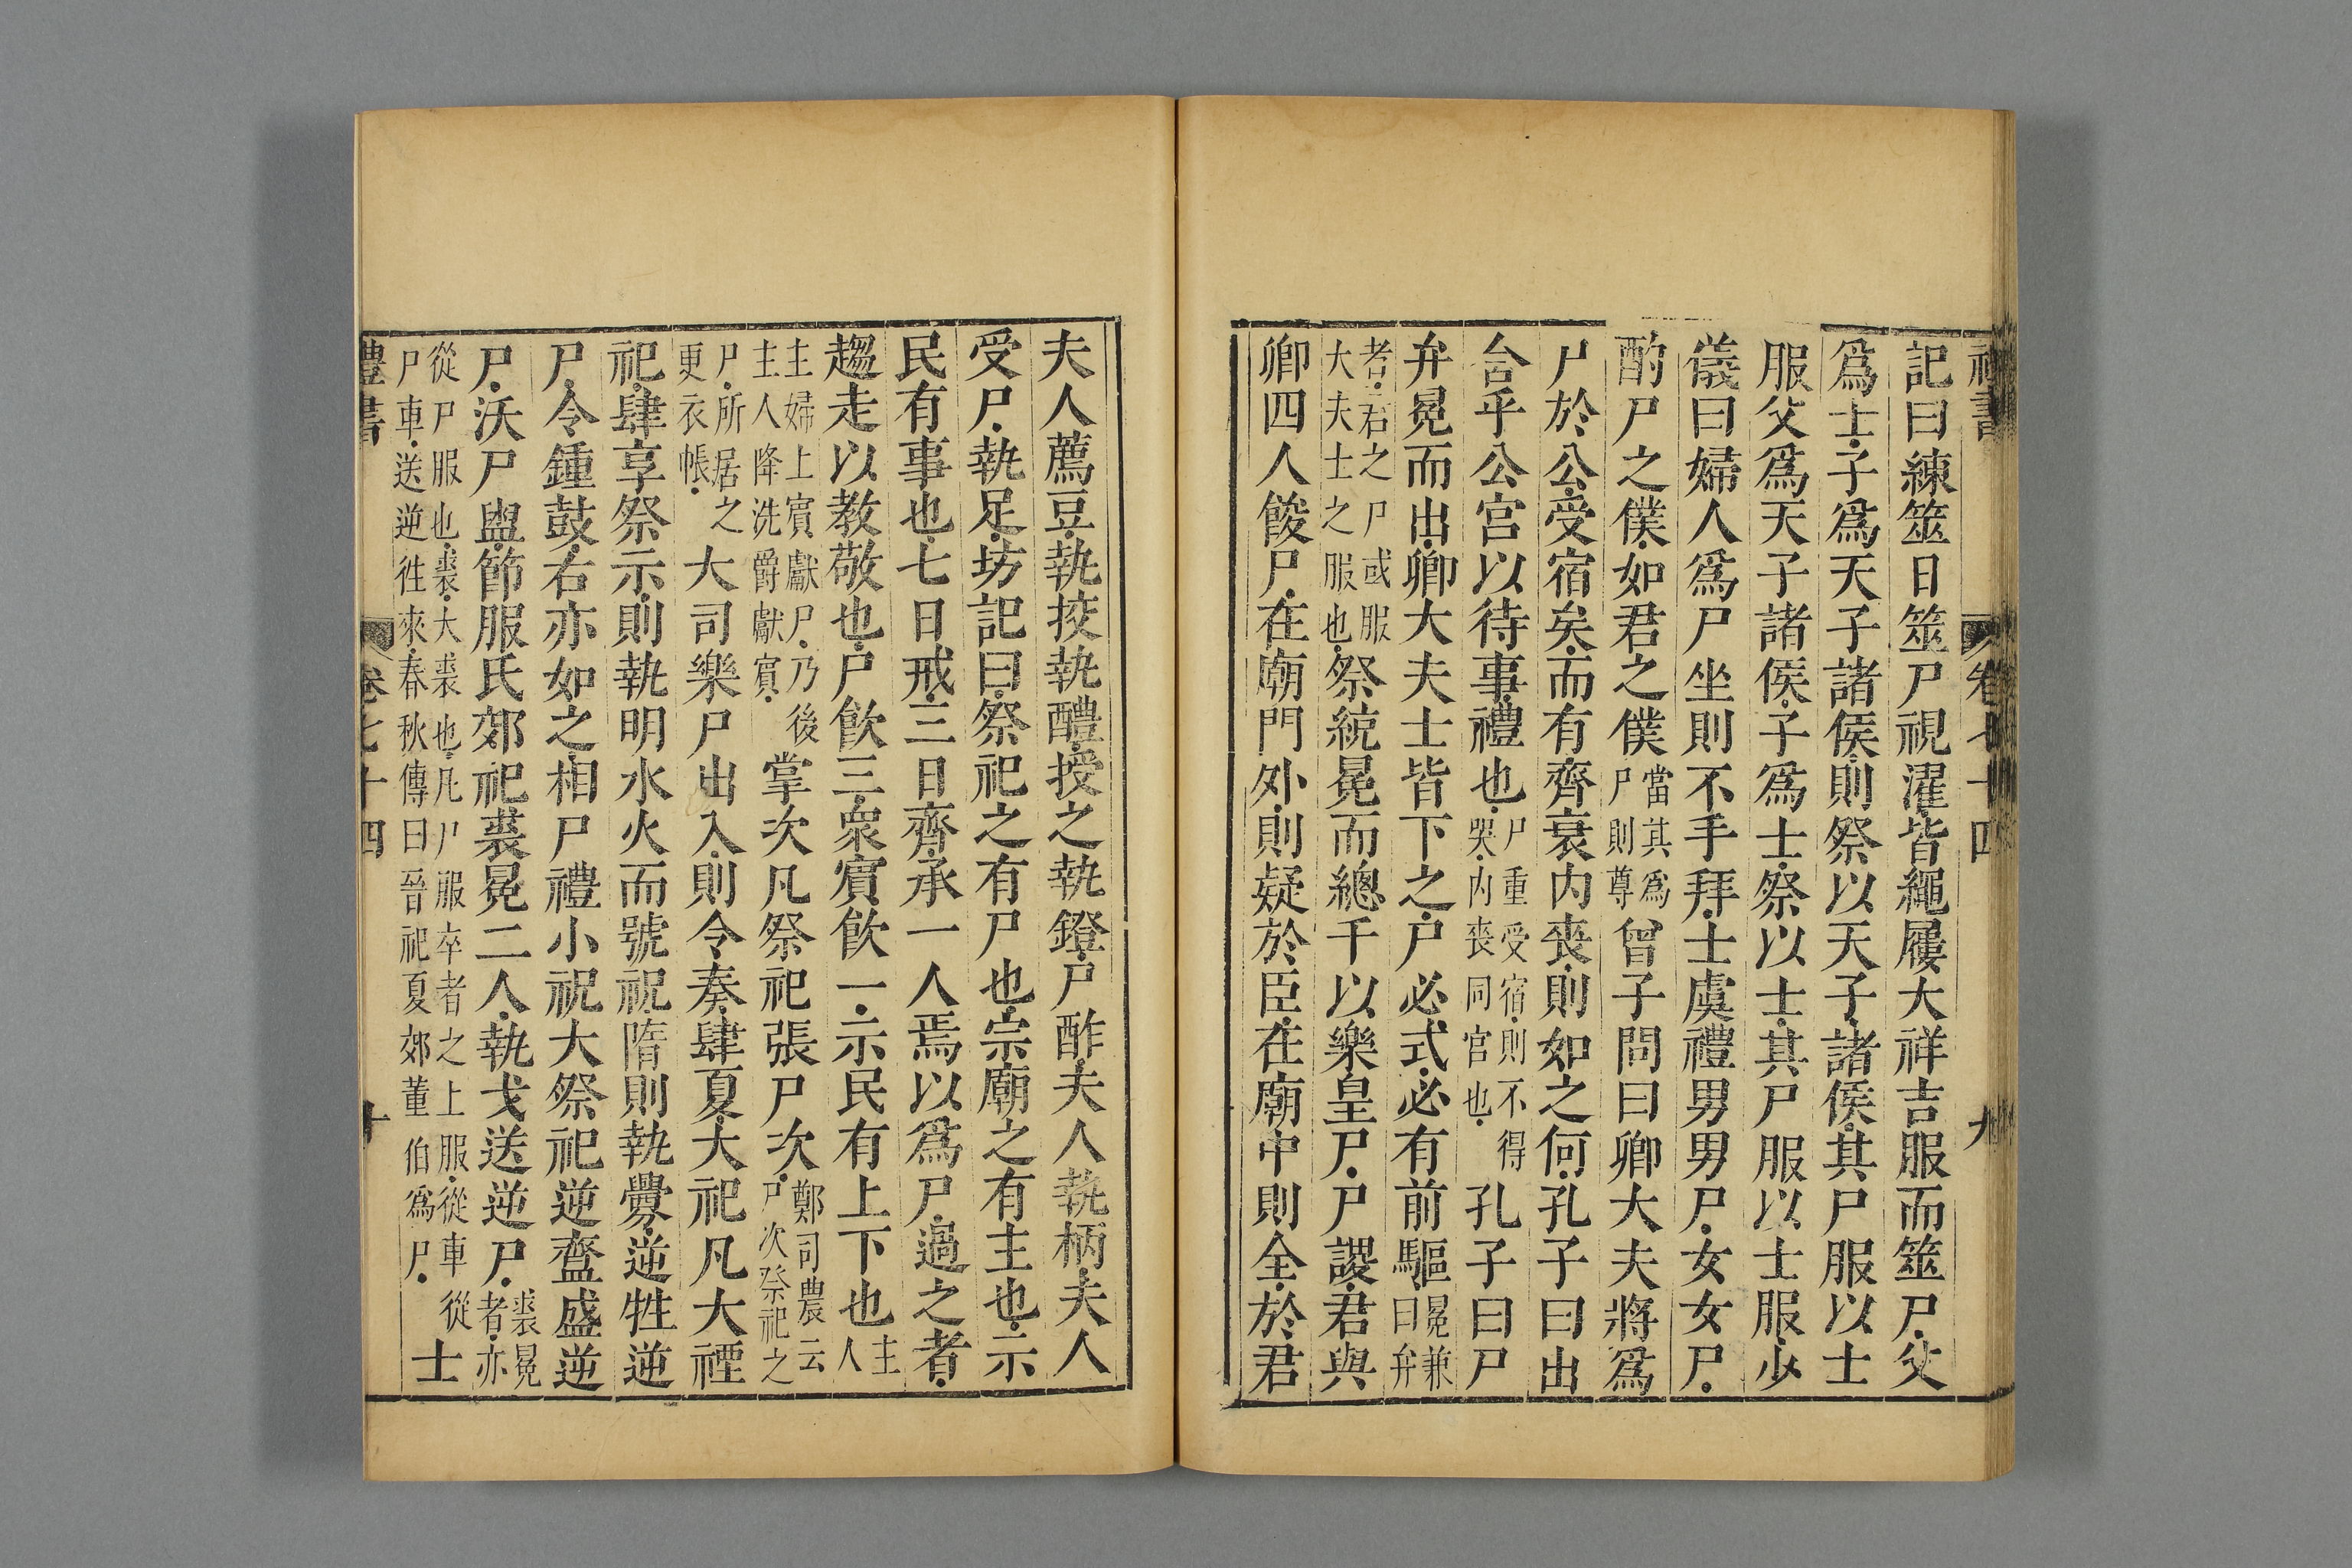 禮書 卷七十四 九
記曰練筮日筮尸視濯皆繩屨大祥吉服而筮尸父
爲士子爲天子諸侯則祭以天子諸侯其尸服以士
服父爲天子諸侯子爲士祭以士其尸服以士服少
儀曰婦人爲尸坐則不手拜士虞禮男男尸女女尸
酌尸之僕如君之僕當其爲尸則尊曾子問曰卿大夫將爲
尸於公受宿矣而有齊衰內喪則如之何孔子曰出
舍乎公宮以待事禮也尸重受宿則不得哭內喪同宮也孔子曰尸
弁冕而出卿大夫士皆下之尸必式必有前驅冕兼曰弁
者君之尸或服大夫士之服也祭統冕而總干以樂皇尸尸謖君與
卿四人餕尸在廟門外則疑於臣在廟中則全於君
夫人薦豆執挍執醴授之執鐙尸酢夫人執柄夫人
受尸執足坊記曰祭祀之有尸也宗廟之有主也示
民有事也七日戒三日齊承一人焉以爲尸過之者
趨走以教敬也尸飮三衆賓飮一示民有上下也主人
主婦上賓獻尸乃後主人降洗爵獻賓掌次凡祭祀張尸次鄭司農云尸次祭祀之
尸所居之更衣帳大司樂尸出入則令奏肆夏大祀凡大禋
祀肆享祭示則執明水火而號祝隋則執釁逆牲逆
尸令鍾鼓右亦如之相尸禮小祝大祭祀逆齍盛逆
尸沃尸盥節服氏郊祀裘冕二人執戈送逆尸裘冕者亦
從尸服也裘大裘也凡尸服卒者之上服從車從尸車送逆往來春秋傳曰晉祀夏郊董伯爲尸士
禮書 卷七十四 十